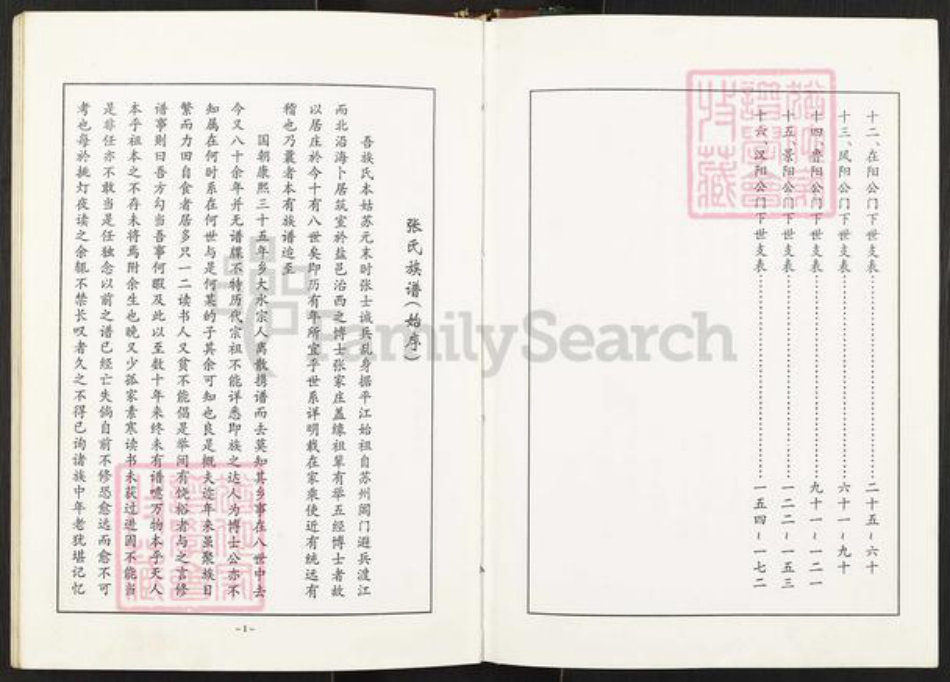 十二、在阳公门下世支表……二十五~六十
十三、凤阳公门下世支表……六十一~九十
十四、鲁阳公门下世支表……九十一~一二一
十五、景阳公门下世支表……一二二~一五三
十六、汉阳公门下世支表……一五四~一七二
张氏族谱（始序）
吾族氏本姑苏元末时张士诚兵乱身据平江始祖自苏州阊门避兵渡江
而北沿海卜居筑室於盐邑治西之博士张家庄盖缘祖辈有举五经博士者故
以居庄於今十有八世矣即历有年所宜乎世系详明载在家乘使近有统远有
稽也乃叢者本有族谱迨至
国朝康熙三十五年乡大水宗人离散携谱而去莫知其乡事在八世中去
今又八十余年并无谱牒不特历代宗祖不能详悉即族之达人为博士公亦不
知属在何时系在何世与是何某的子其余可知也良是慨夫迩年来虽聚族日
繁而力田自食者居多只一二读书人又贫不能倡是举间有饶裕者与之言修
谱事则曰吾方勾当吾事何暇及此以至数十年来终未有谱噫万物本乎天人
本乎祖本之不存未将焉附余生也晚又少孤家素寒读书未获过进固不能当
是非任亦不敢当是任独念以前之谱已经亡失倘自前不修恐愈远而愈不可
考也每於挑灯夜读之余辄不禁长叹者久之不得已询诸族中年老犹堪记忆
-1-
FamilySearch